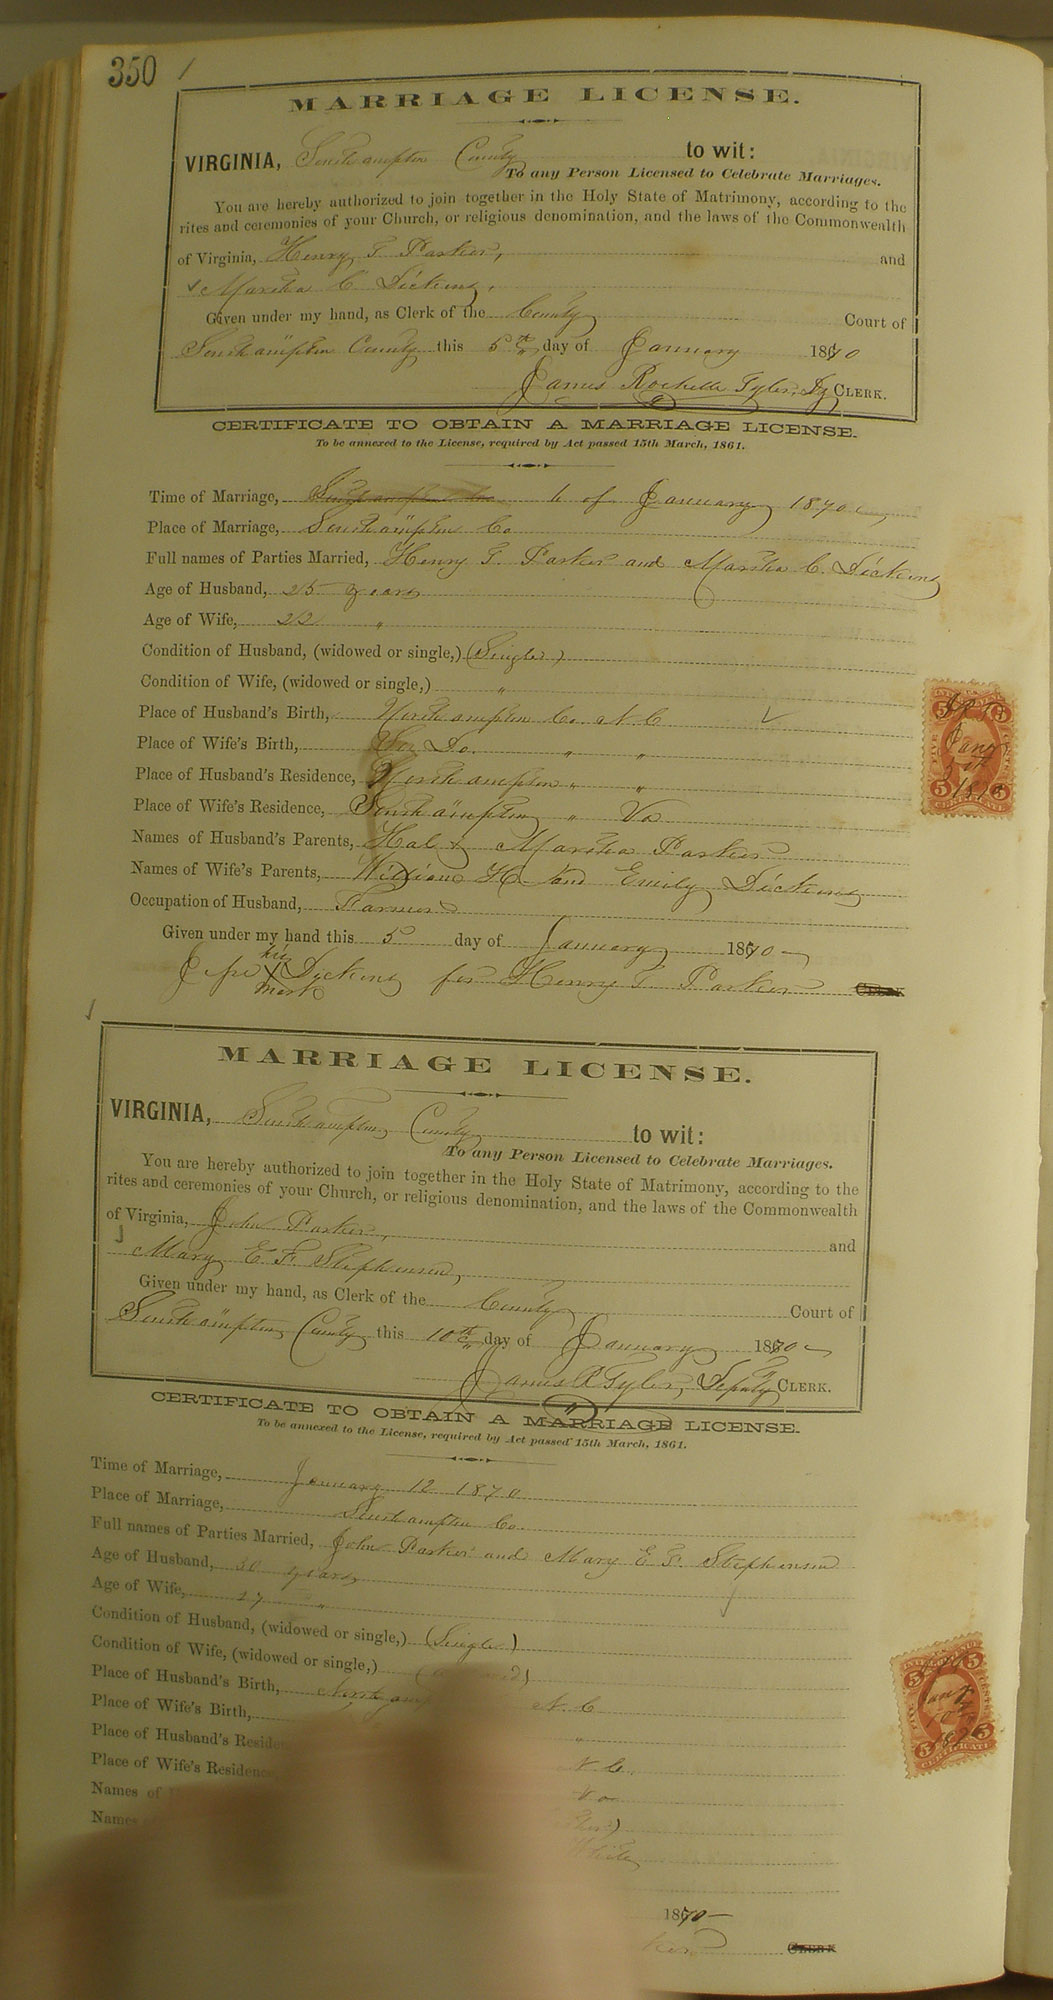 350
MARRIAGE LICENSE.
VIRGINIA, Southampton County to wit:
To any Person Licensed to Celebrate Marriages.
You are hereby authorized to join together in the Holy State of Matrimony, according to the
rites and ceremonies of your Church, or religious denomination, and the laws of the Commonwealth
of Virginia, Henry T. Parker, and
Martha C. Dickens.
Given under my hand, as Clerk of the County Court of
Southampton County this 5th day of January 1870
James Rochelle Tyler, Dy CLERK.
CERTIFICATE TO OBTAIN A MARRIAGE LICENSE.
To be annexed to the License, required by Act passed 15th March, 1861.
Time of Marriage, 6 of January 1870
Place of Marriage, Southampton Co
Full names of Parties Married, Henry T. Parker and Martha C. Dickens
Age of Husband, 25 years
Age of Wife, 22 "
Condition of Husband, (widowed or single,) (Single)
Condition of Wife, (widowed or single,) "
Place of Husband's Birth, Northampton Co. N.C
Place of Wife's Birth, Do. " "
Place of Husband's Residence, Northampton " "
Place of Wife's Residence, Southampton " Va
Names of Husband's Parents, Hal & Martha Parker
Names of Wife's Parents, William H. and Emily Dickens
Occupation of Husband, Farmer
Given under my hand this 5 day of January 1870
his
X Dickens for Henry T. Parker CLERK
mark
MARRIAGE LICENSE.
VIRGINIA, Southampton County to wit:
To any Person Licensed to Celebrate Marriages.
You are hereby authorized to join together in the Holy State of Matrimony, according to the
rites and ceremonies of your Church, or religious denomination, and the laws of the Commonwealth
of Virginia, John Parker, and
Mary E. F. Stephenson,
Given under my hand, as Clerk of the County Court of
Southampton County this 10th day of January 1870
James R Tyler, Deputy CLERK.
CERTIFICATE TO OBTAIN A MARRIAGE LICENSE.
To be annexed to the License, required by Act passed 15th March, 1861.
Time of Marriage, January 12 1870
Place of Marriage, Southampton Co.
Full names of Parties Married, John Parker and Mary E. F. Stephenson
Age of Husband, 30 years
Age of Wife, 27 "
Condition of Husband, (widowed or single,) (Single)
Condition of Wife, (widowed or single,)
Place of Husband's Birth, N.C
Place of Wife's Birth, "
Place of Husband's
Place of Wife's Residence N.C.
Names of Va
Names
White
1870
CLERK